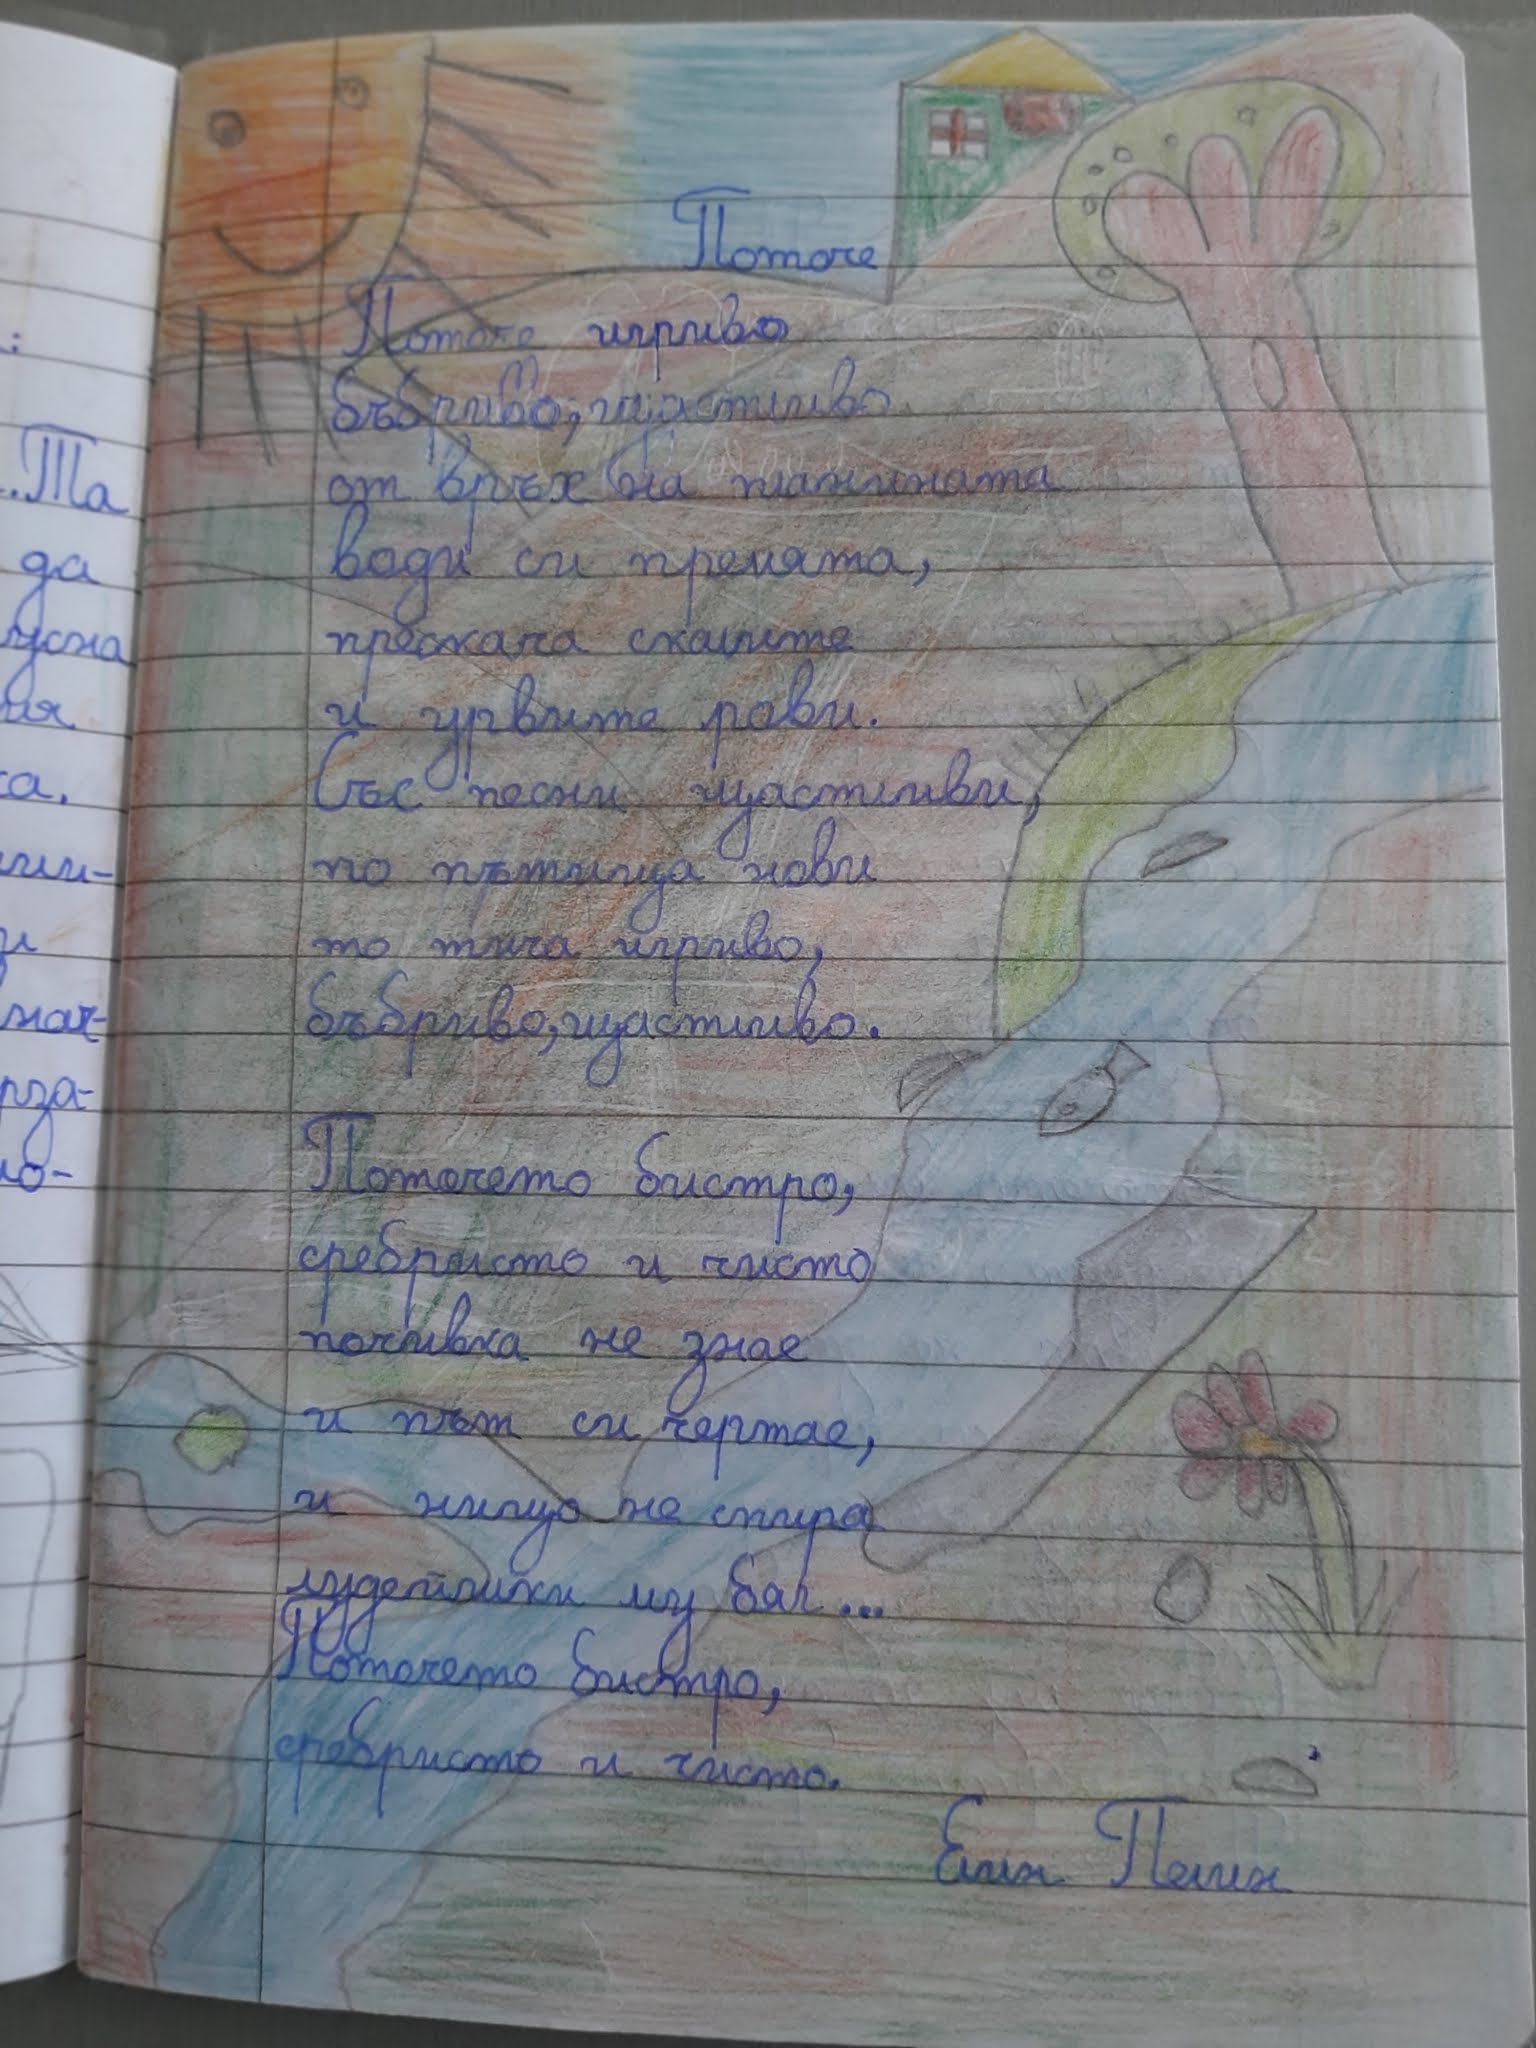 Поточе
Поточе игриво
бъбриво, щастливо
от връх на планината
води си премята,
прескача скалите
и урвите рови.
Със песни щастливи,
по пътища нови
то тича игриво,
бъбриво, щастливо.
Поточето бистро,
сребристо и чисто
почивка не знае
и път си чертае,
и нищо не спира
лудешки му бяг...
Поточето бистро,
сребристо и чисто.
Елин Пелин
...Та
да